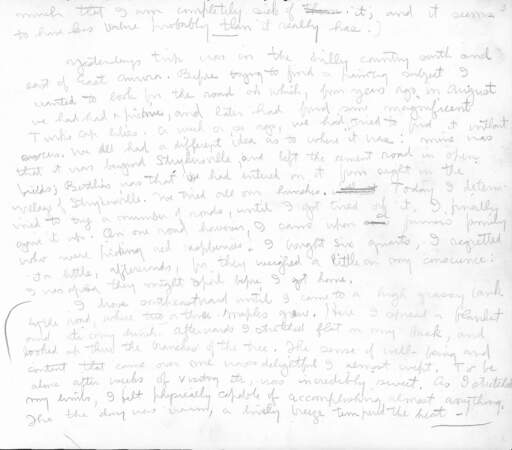 much that I am completely sick of it, and it seems
to have less value probably than it really has.)
Yesterday's trip was in the hilly country south and
east of East Aurora. Before trying to find a painting subject I
wanted to look for the road on which, four years ago in August
we had had a picnic, and later had found some magnificent
Turks cap lilies. A week or so ago, we had tried to find it without
success. We all had a different idea as to where it was: mine was
that it was beyond Strykersville, and left the cement road in open
fields; Bertha's was that we had entered on it from right in the
village of Strykersville. We tried all our hunches. Today I determ-
ined to try a number of roads, until I got tired of it, I finally
gave it up. On one road however, I came upon a farmer's family
who were picking red raspberries. I bought six quarts, I regretted
it a little, afterwards, for they weighed a little on my conscience:
I was afraid they might spoil before I got home.
I drove southeastward until I came to a high grassy bank
by the road, where two or three maples grew. Here I spread a blanket
and ate my lunch. Afterwards I stretched flat on my back, and
looked up thru the branches of the tree. The sense of well-being and
content that came over me was delightful I almost wept. To be
alone after weeks of visiting etc, was incredibly sweet. As I stretched
my limbs, I felt physically capable of accomplishing almost anything.
Tho the day was warm, a lively breeze tempered the heat —